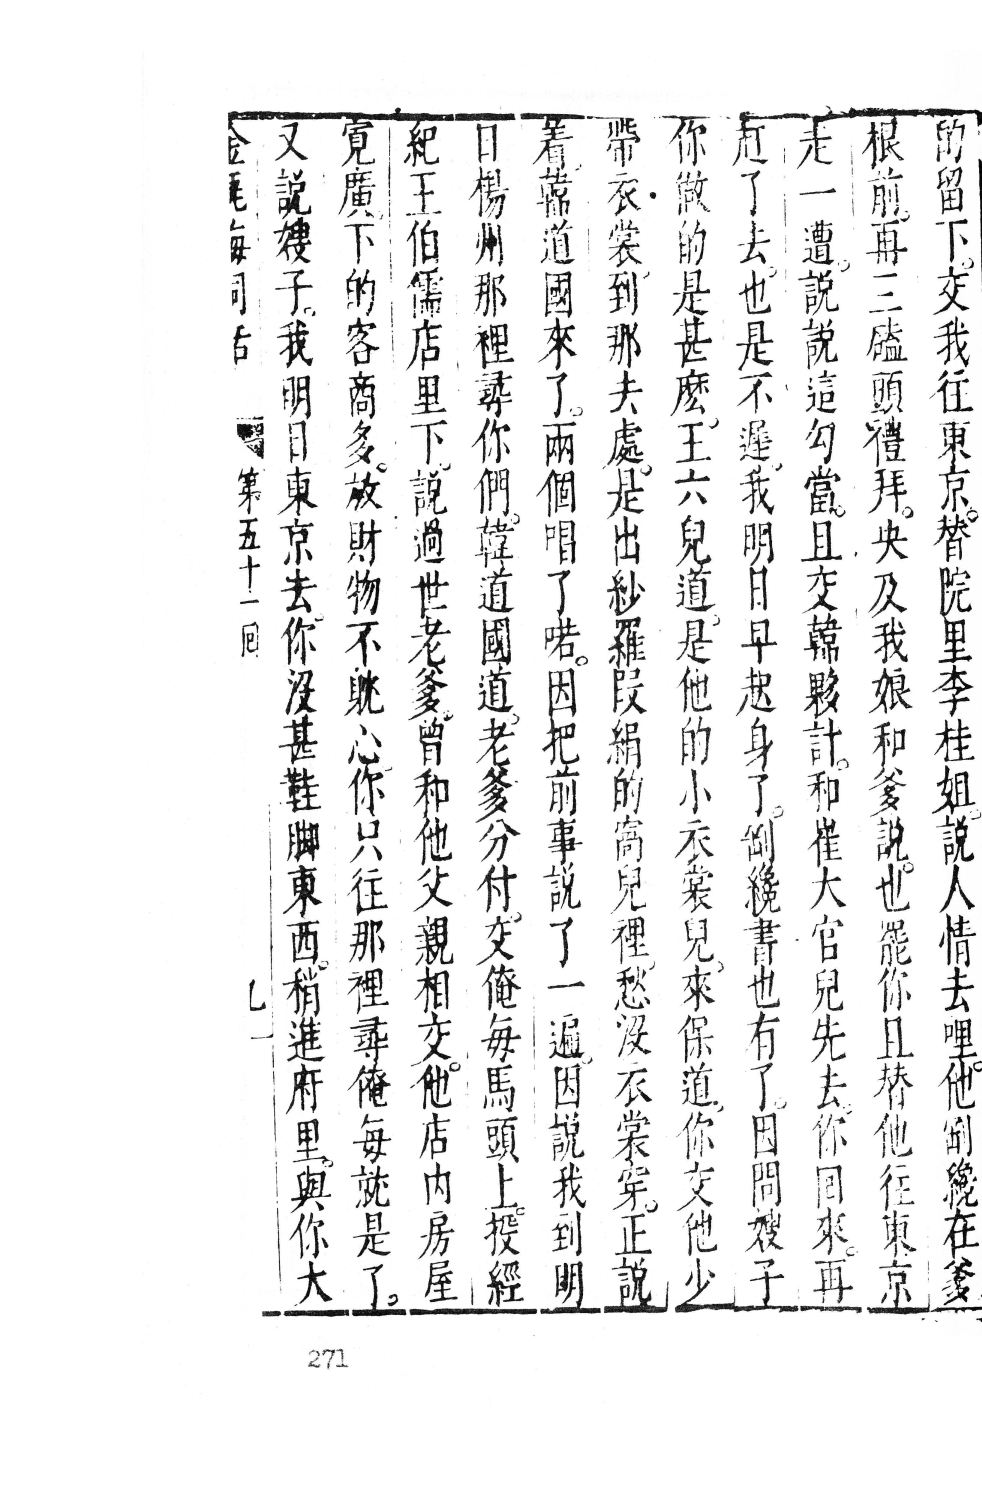 的留下。交我往東京。替院里李桂姐。說人情去哩。他剛纔在爹
根前。再三磕頭禮拜。央及我娘和爹說。也罷你且替他往東京
走一遭。說說這勾當。且交韓夥計。和崔大官兒先去。你回來。再
赶了去。也是不遲。我明日早起身了。剛纔書也有了。因問嫂子
你做的是甚麽。王六兒道。是他的小衣裳兒。來保道。你交他少
帶衣裳。到那去處。是出紗羅段絹的窩兒裡。愁没衣裳穿。正說
着。韓道國來了。兩個唱了喏。因把前事說了一遍。因說我到明
日楊州那裡尋你們。韓道國道。老爹分付。交俺每馬頭上。投經
紀王伯儒店里下。說過世老爹。曾和他父親相交。他店内房屋
寬廣。下的客商多。放財物不躭心。你只往那裡尋俺每就是了。
又說嫂子。我明日東京去。你没甚鞋脚東西。稍進府里。與你大
金瓶梅詞話 第五十一回
271